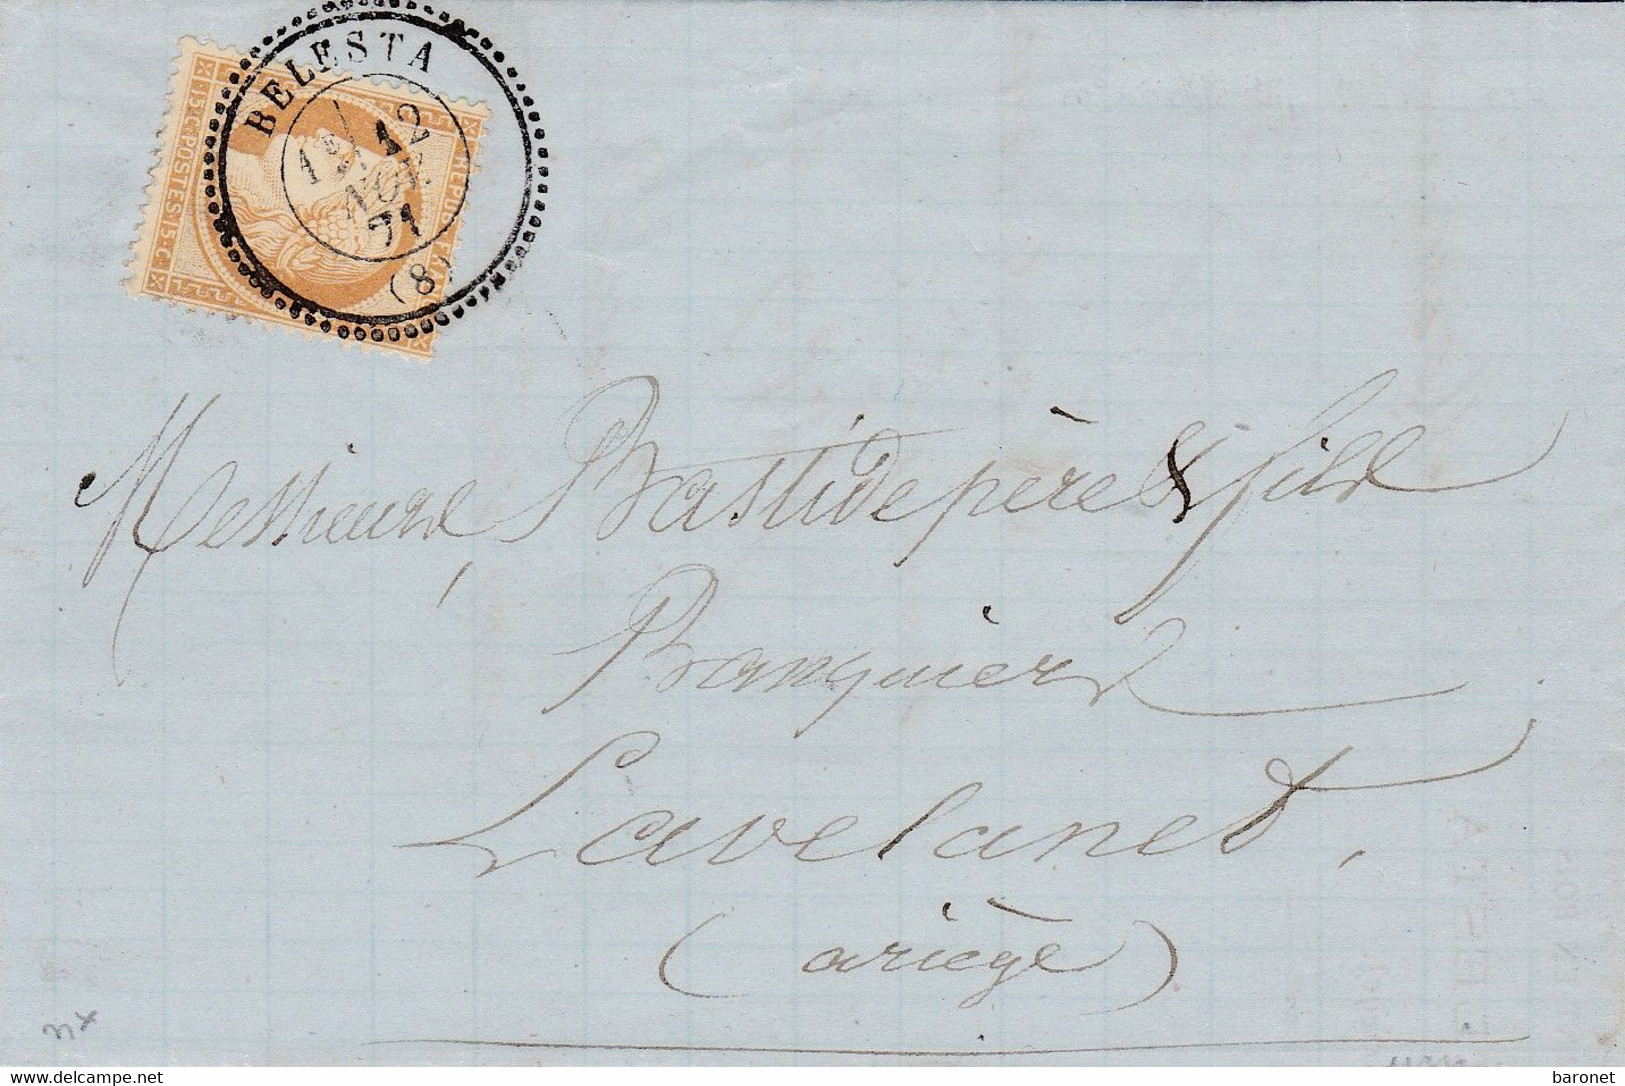 BELESTA
1E 12
AOUT
71
(8)
15.C.POSTES.15.C
REPUB FRA
Messieurs Bastide père & fils
Banquiers
Lavelanet,
(ariège)
baronet